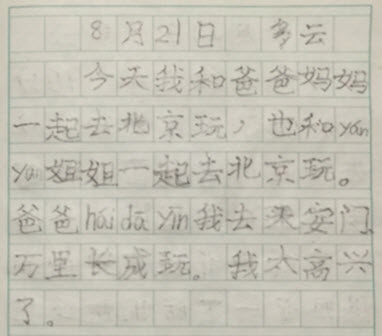 8月21日 多云
今天我和爸爸妈妈
一起去北京玩，也和yán
yan姐姐一起去北京玩。
爸爸hái dā yīn我去天安门
万里长成玩。我太高兴
了。